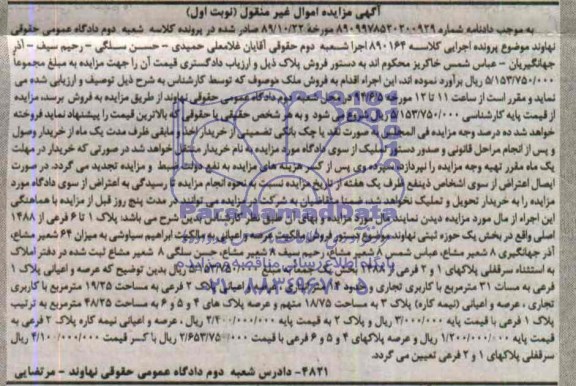 آگهی مزایده اموال غیر منقول (نوبت اول)
به موجب دادنامه شماره ۸۹۰۹۹۷۸۵۲۰۲۰۰۹۲۹ مورخهٔ ۸۹/۱۰/۲۲ صادر شده در پرونده کلاسه شعبه دوم دادگاه عمومی حقوقی
نهاوند موضوع پرونده اجرایی کلاسه ۸۹۰۱۶۴ اجرا شعبه دوم حقوقی آقایان غلامعلی حمیدی - حسن سلگی - رحیم سیف - آذر
جهانگیریان - عباس شمس خاگریز محکوم اند به دستور فروش پلاک ذیل و ارزیاب دادگستری قیمت آن را جهت مزایده به مبلغ مجموعاً
۵/۱۵۳/۷۵۰/۰۰۰ ریال برآورد نموده اند، این اجراء اقدام به فروش ملک موصوف که توسط کارشناس به شرح ذیل توصیف و ارزیابی شده می
نماید و مقرر است از ساعت ۱۱ تا ۱۲ مورخه شعبه دوم دادگاه عمومی حقوقی نهاوند از طریق مزایده به فروش برسد، مزایده
از قیمت پایه کارشناسی ۵/۱۵۳/۷۵۰/۰۰۰ ریال شروع می شود و به هر شخص حقیقی یا حقوقی که بالاترین قیمت را پیشنهاد نماید فروخته
خواهد شد ده درصد وجه مزایده فی المجلس به صورت نقد یا چک بانکی تضمینی از خریدار اخذ مابقی ظرف مدت یک ماه از خریدار وصول
و پس از انجام مراحل قانونی و صدور دستور تملیک از سوی دادگاه مورد مزایده به نام خریدار منتقل خواهد شد در صورتی که خریدار در مهلت
یک ماه مقرر تهیه وجه مزایده را نپردازد سپرده وی پس از کسر هزینه های مزایده به نفع دولت ضبط و مزایده تجدید می گردد. در صورت
ایصال اعتراض از سوی اشخاص ذینفع ظرف یک هفته از تاریخ مزایده نسبت به نحوه انجام مزایده تا رسیدگی به اعتراض از سوی دادگاه مورد
مزایده را به خریدار تحویل و تملیک نخواهد شد ضمنا متقاضیان به شرکت در مزایده می توانند در مدت پنج روز قبل از مزایده با هماهنگی
این اجراء از مال مورد مزایده دیدن نمایند شرح می باشد: پلاک ۱ تا ۶ فرعی از ۱۴۸۸
اصلی واقع در بخش یک حوزه ثبتی نهاوند موضوع دستور فروش مالکیت عرصه و اعیانی به مالکیت ابراهیم سیاوشی به میزان ۶۴ شعیر مشاع،
آذر جهانگیری ۸ شعیر مشاع، عباس شمس شعیر مشاع، رحیم سیف شعیر مشاع، حسن سلگی ۸ شعیر مشاع ثبت شده در دفتر املاک
به استثناء سرقفلی پلاکهای ۱ و ۲ فرعی از ۱۴۸۸ بخش یک جمعاً به مبلغ ۵/۱۵۳/۷۵۰/۰۰۰ ریال بدین توضیح که عرصه و اعیانی پلاک ۱
فرعی به مساحت ۳۱ مترمربع با کاربری تجاری و عرصه و اعیانی پلاک ۲ فرعی به مساحت ۱۹/۲۵ مترمربع با کاربری
تجاری ، عرصه و اعیانی (نیمه کاره) پلاک ۳ به مساحت ۱۸/۷۵ متهم و عرصه پلاک های ۴ و ۵ و ۶ به مساحت ۴۸/۲۵ مترمربع به ترتیب
پلاک ۱ فرعی با قیمت پایه ۳/۰۰۰/۰۰۰ ریال و پلاک ۲ به قیمت پایه ۲/۴۰۰/۰۰۰/۰۰۰ ریال ، عرصه و اعیانی نیمه کاره پلاک ۲ فرعی به
قیمت پایه ۱/۲۰۰/۰۰۰/۰۰۰ ریال و عرصه پلاکهای ۴ و ۵ و ۶ فرعی با قیمت ۲/۶۵۳/۷۵۰/۰۰۰ ریال با کسر قیمت ۴/۱۰۰/۰۰۰/۰۰۰ ریال
سرقفلی پلاکهای ۱ و ۲ فرعی تعیین می گردد.
۴۸۲۱- دادرس شعبه دوم دادگاه عمومی حقوقی نهاوند - مرتضایی
ParsNamadData
پایگاه اطلاع رسانی مناقصه و مزایده
۰۲۱-۸۸۳۴۹۶۷۰-۵